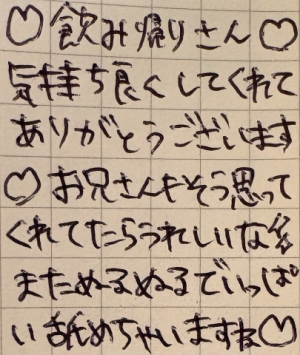 ♡飲み帰りさん♡
気持ち良くしてくれて
ありがとうございます
♡お兄さんもそう思って
くれてたらうれしいな
またぬるぬるでいっぱ
い舐めちゃいますね♡